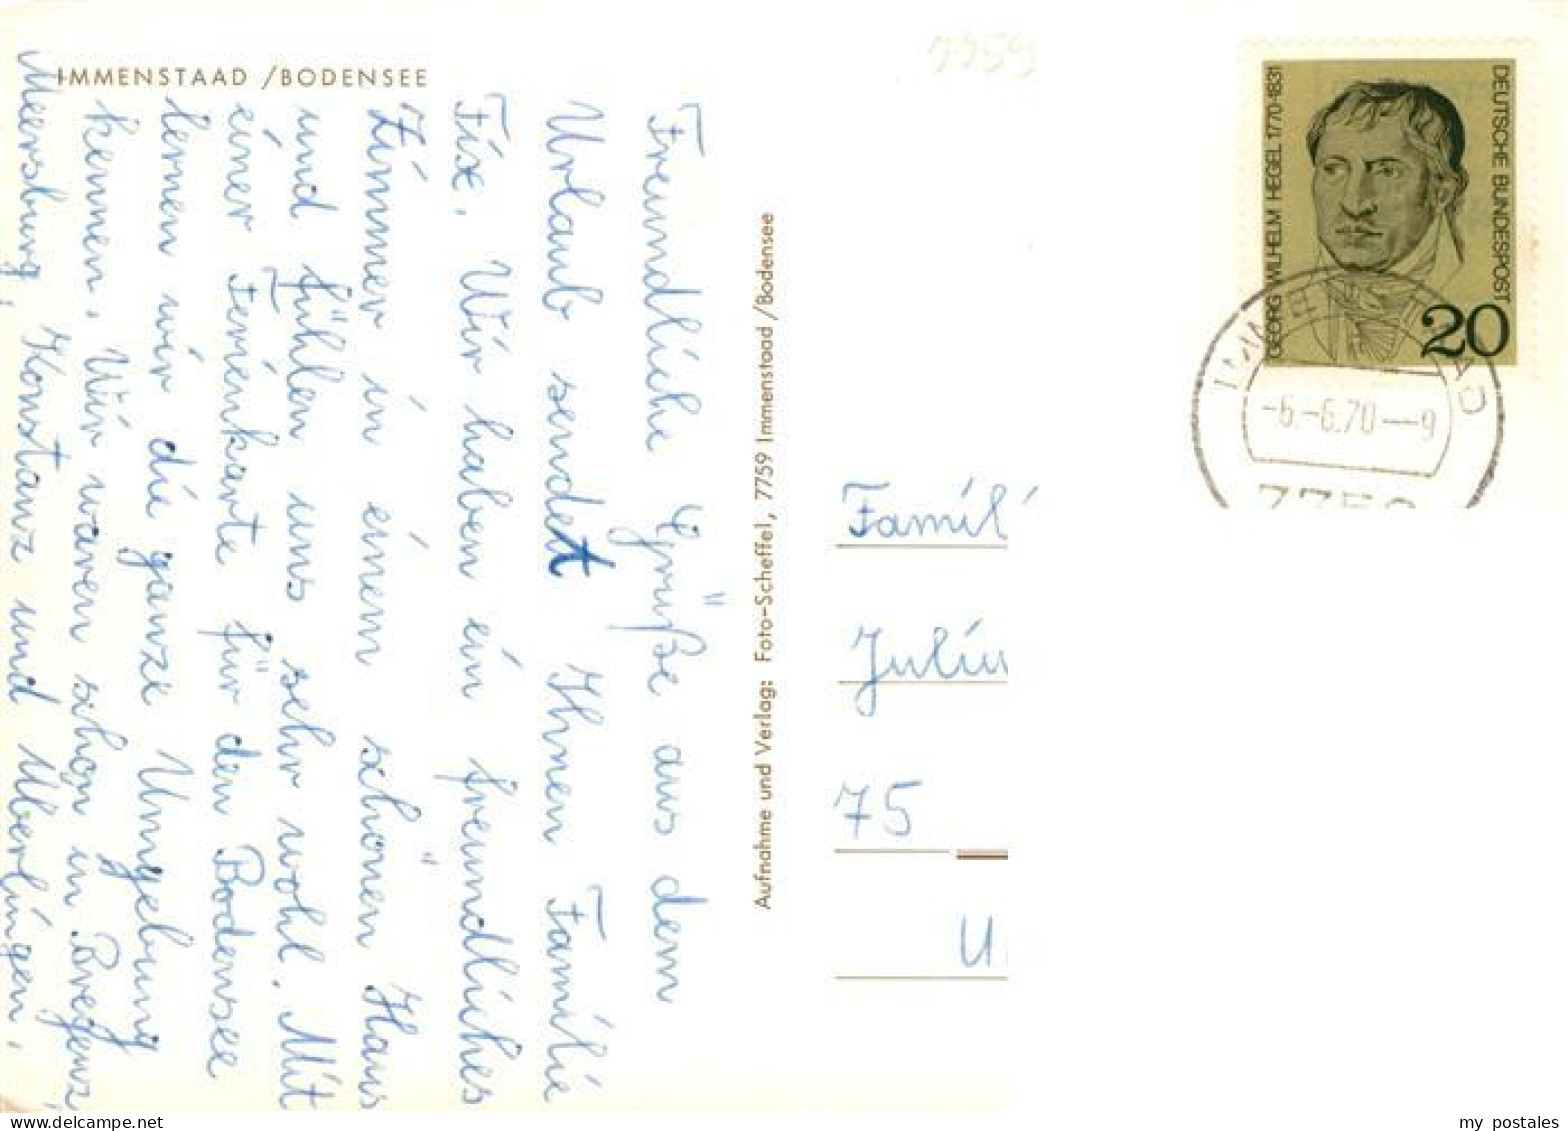 IMMENSTAAD / BODENSEE
Freundliche Grüße aus dem
Urlaub sendet Ihnen Familie
Fix. Wir haben ein freundliches
Zimmer in einem schönen Haus
und fühlen uns sehr wohl. Mit
einer Ferienkarte für den Bodensee
lernen wir die ganze Umgebung
kennen. Wir waren schon in Bregenz,
Meersburg, Konstanz und Überlingen.
Aufnahme und Verlag: Foto-Scheffel, 7759 Immenstaad / Bodensee
7759
GEORG WILHELM HEGEL 1770·1831
DEUTSCHE BUNDESPOST
20
IMMENSTAAD
-6.-6.70--9
7759
Famil
Juliu
75
U
my postales